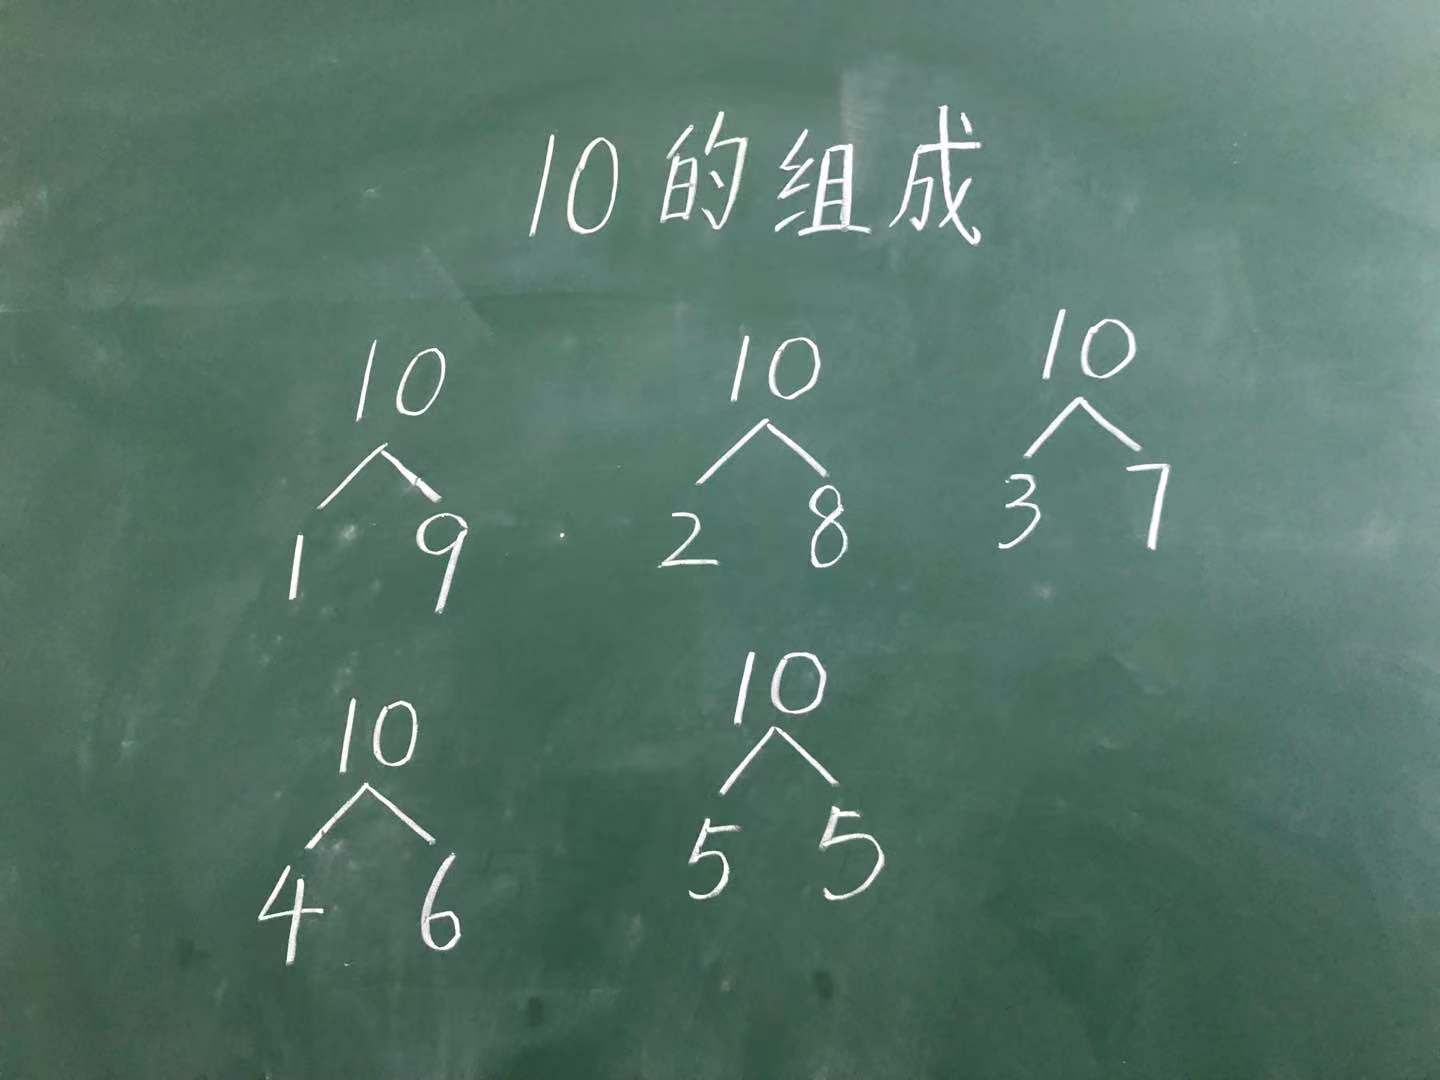 10的组成
10 10 10
1 9 2 8 3 7
10 10
4 6 5 5